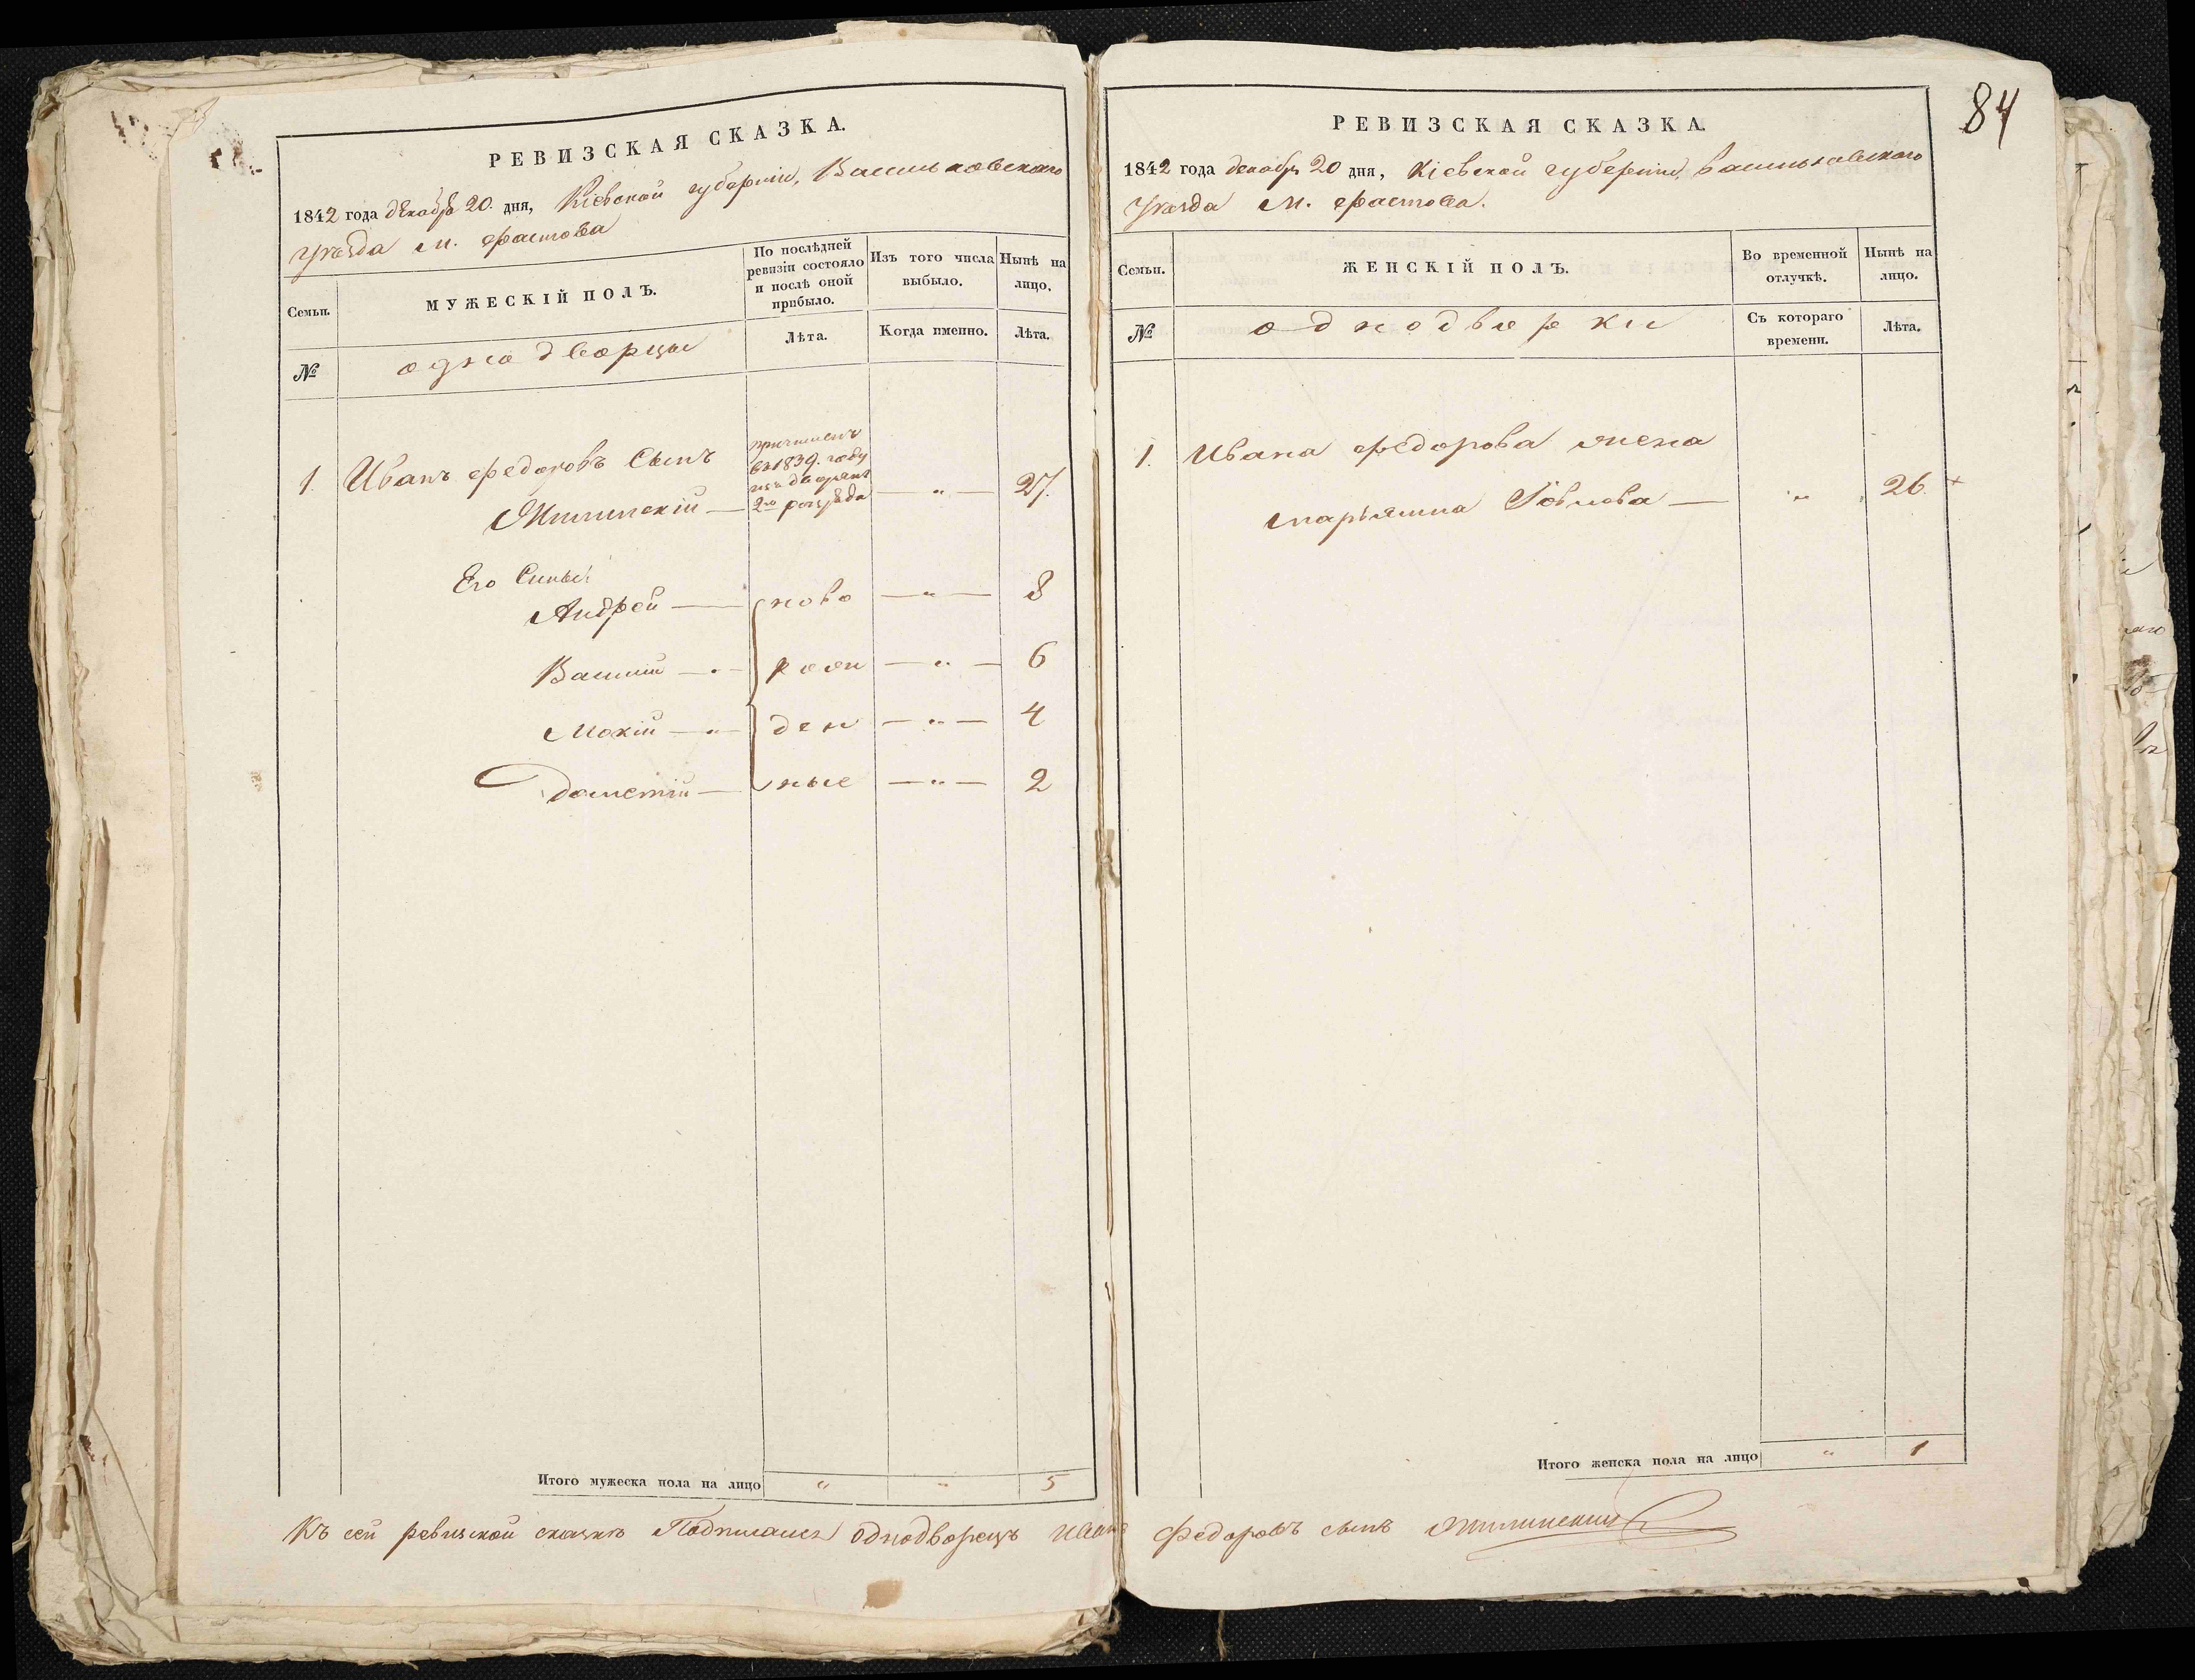 РЕВИЗСКАЯ СКАЗКА.
1842 года декабря 20. дня, Кіевской губерніи, Васильковскаго
уѣзда м. Фастова
Семьи.
МУЖЕСКІЙ ПОЛЪ.
По послѣдней ревизіи состояло и послѣ оной прибыло.
Изъ того числа выбыло.
Нынѣ на лицо.
№
однодворцы
Лѣта.
Когда именно.
Лѣта.
причисленъ
въ 1839. году
изъ дворянъ
2го разряда
1. Иванъ Федоровъ Сынъ
— „ — 27.
Его Сыны
Андрей — ново — „ — 8
Василій — „ — рож — „ — 6
Мокій — „ — ден — „ — 4
Дометій — ные — „ — 2
Итого мужеска пола на лицо „ „ 5
84
РЕВИЗСКАЯ СКАЗКА.
1842 года декабря 20 дня, Кіевской губерніи, Васильковскаго
уѣзда М. Фастова.
Семьи.
ЖЕНСКІЙ ПОЛЪ.
Во временной отлучкѣ.
Нынѣ на лицо.
№
однодворки
Съ котораго времени.
Лѣта.
1. Ивана Федорова жена
Марьянна — „ 26. +
Итого женска пола на лицо „ 1
Къ сей ревизской сказкѣ Подписался однодворецъ Иванъ Федоровъ сынъ